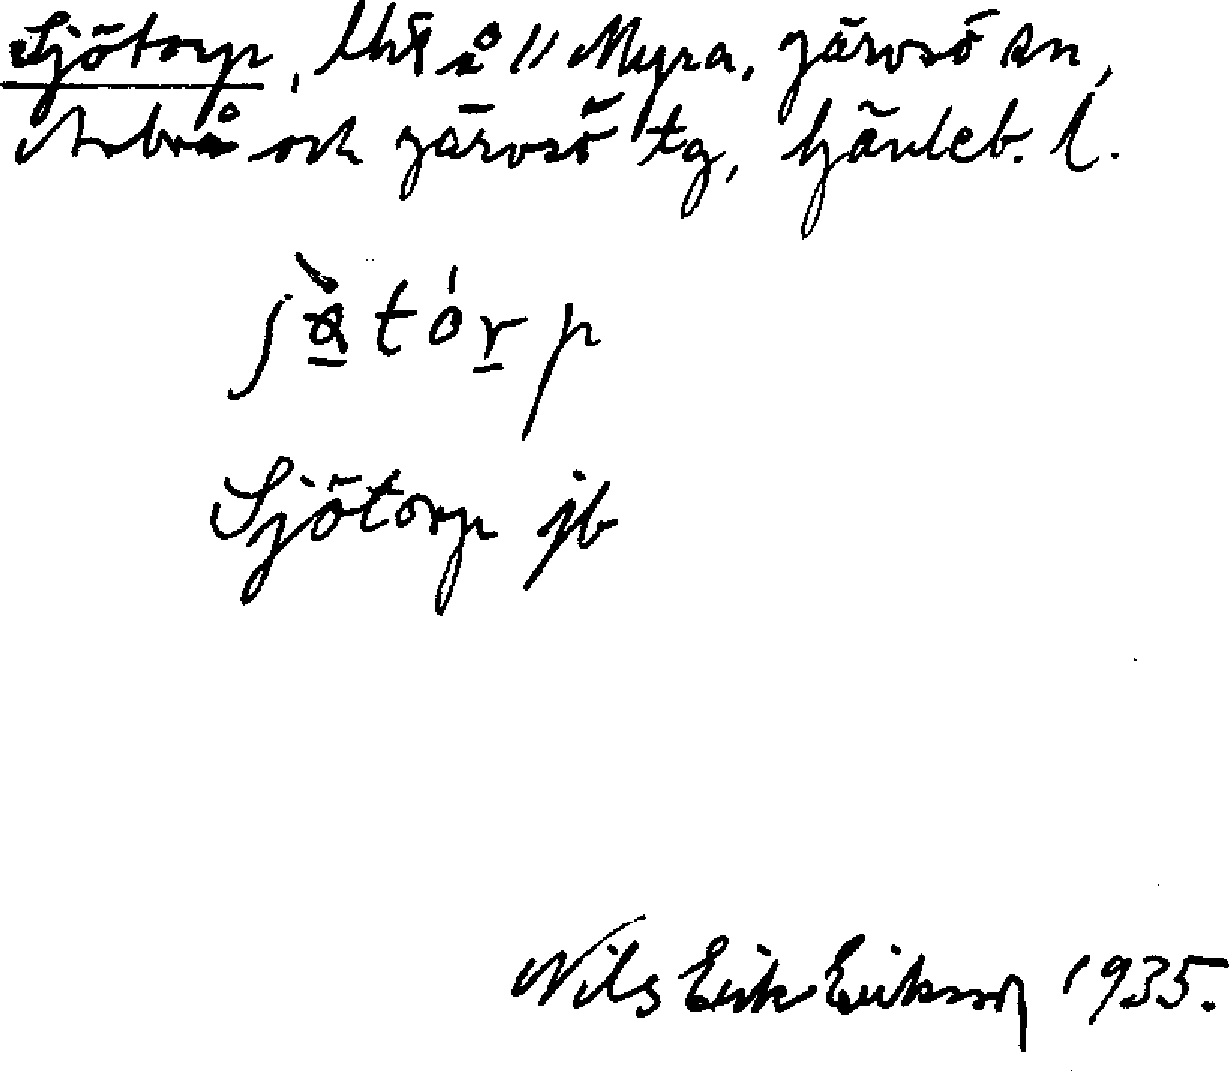 Sjötorp, lht å 11 Myra, Järvsö sn,
Arbrå och Järvsö tg, Gävleb. l.
Sjötorp jb
Nils Erik Eriksson 1935.